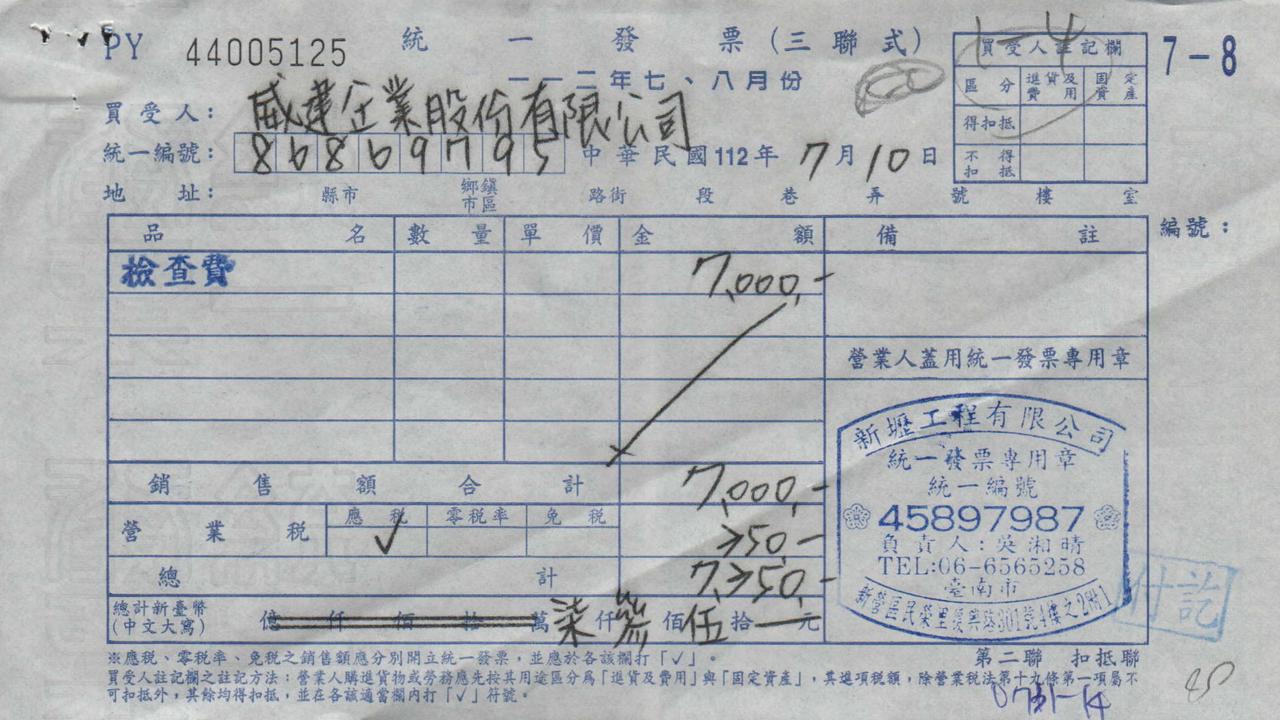 PY 44005125 統一發票(三聯式) 7-8
一一二年七、八月份
1-4
買受人註記欄
區分 進貨及費用 固定資產
得扣抵
不得扣抵
買受人: 威建企業股份有限公司
統一編號: 86869795 中華民國112年7月10日
地址: 縣市 鄉鎮市區 路街 段 巷 弄 號 樓 室
編號:
品名 數量 單價 金額 備註
檢查費 7,000,-
營業人蓋用統一發票專用章
銷售額合計 7,000,-
營業稅 應稅 ✓ 零稅率 免稅 250,-
總計 7,250,-
總計新臺幣(中文大寫) 億 仟 佰 拾 萬 柒 仟 貳 佰 伍 拾 元
新壢工程有限公司
統一發票專用章
統一編號
45897987
負責人:吳湘晴
TEL:06-6565258
臺南市
新營區民榮里復興路301號4樓之2附1
付訖
※應稅、零稅率、免稅之銷售額應分別開立統一發票,並應於各該欄打「✓」。
第二聯 扣抵聯
買受人註記欄之註記方法:營業人購進貨物或勞務應先按其用途區分爲「進貨及費用」與「固定資產」,其進項稅額,除營業稅法第十九條第一項屬不
可扣抵外,其餘均得扣抵,並在各該適當欄內打「✓」符號。
0731-14